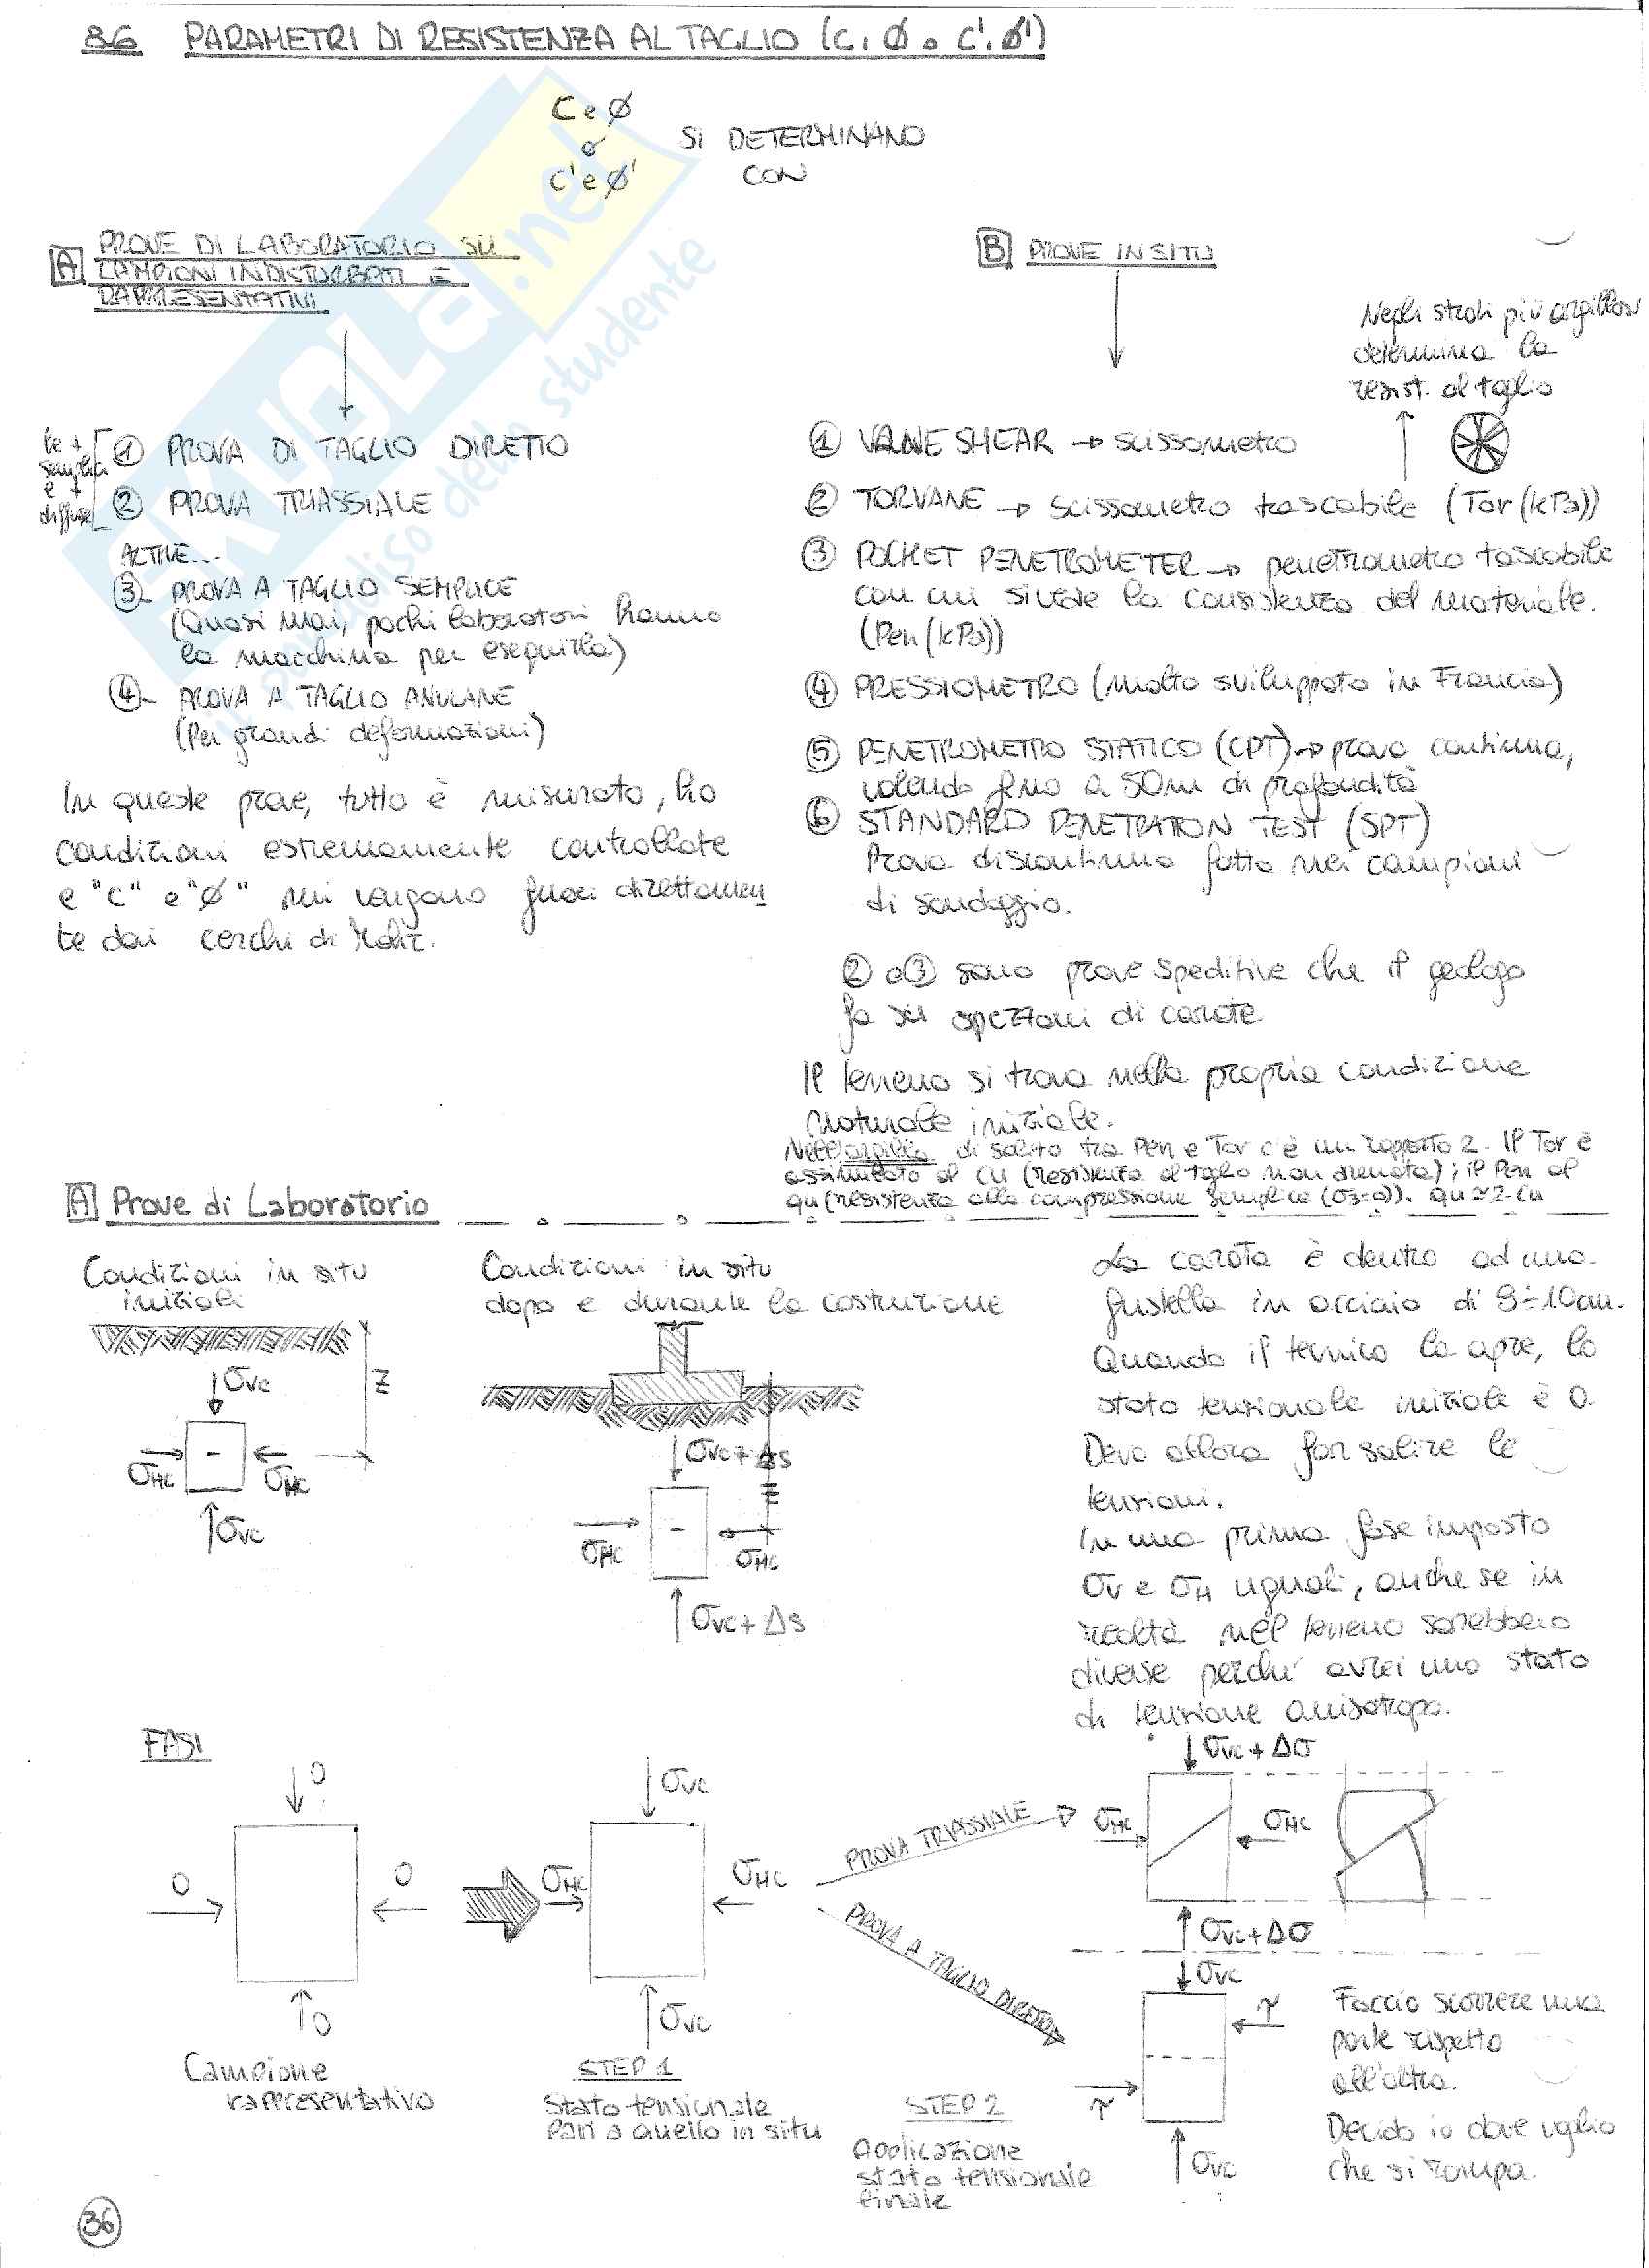 8.6 PARAMETRI DI RESISTENZA AL TAGLIO (C, Ø o C', Ø')
C e Ø
o
C' e Ø'
SI DETERMINANO
CON
A PROVE DI LABORATORIO SU
CAMPIONI INDISTURBATI E
RAPPRESENTATIVI
le +
semplici
e +
diffuse
① PROVA DI TAGLIO DIRETTO
② PROVA TRIASSIALE
ALTRE...
③ PROVA A TAGLIO SEMPLICE
(Quasi mai, pochi laboratori hanno
la macchina per eseguirla)
④ PROVA A TAGLIO ANULARE
(Per grandi deformazioni)
In queste prove, tutto è misurato, ho
condizioni estremamente controllate
e "C" e "Ø" mi vengono fuori direttamen
te dai cerchi di Mohr.
B PROVE IN SITU
Negli strati più argillosi
determina la
resist. al taglio
① VANE SHEAR → scissometro
② TORVANE → scissometro tascabile (Tor (kPa))
③ POCKET PENETROMETER → penetrometro tascabile
con cui si vede la consistenza del materiale.
(Pen (kPa))
④ PRESSIOMETRO (molto sviluppato in Francia)
⑤ PENETROMETRO STATICO (CPT) → prova continua,
volendo fino a 50m di profondità
⑥ STANDARD PENETRATION TEST (SPT)
Prova discontinua fatta nei campioni
di sondaggio.
② o ③ sono prove speditive che il geologo
fa su spezzoni di carote
Il terreno si trova nella propria condizione
naturale iniziale.
Nelle argille di solito tra Pen e Tor c'è un rapporto 2. Il Tor è
assimilato al Cu (resistenza al taglio non drenata); il Pen al
qu (resistenza alla compressione semplice (σ3=0)). qu ≃ 2·Cu
A Prove di Laboratorio
Condizioni in situ
iniziali
σvc
Z
σHC
σHC
σvc
Condizioni in situ
dopo e durante la costruzione
σvc + Δs
Z
σHC
σHC
σvc + Δs
La carota è dentro ad una
fustella in acciaio di 8÷10cm.
Quando il tecnico la apre, lo
stato tensionale iniziale è 0.
Devo allora far salire le
tensioni.
In una prima fase imposto
σv e σH uguali, anche se in
realtà nel terreno sarebbero
diverse perché avrei uno stato
di tensione anisotropo.
FASI
0
0
0
0
Campione
rappresentativo
σvc
σHC
σHC
σvc
STEP 1
Stato tensionale
pari a quello in situ
PROVA TRIASSIALE
PROVA A TAGLIO DIRETTO
σvc + Δσ
σHC
σHC
σvc + Δσ
σvc
τ
τ
σvc
STEP 2
Applicazione
stato tensionale
finale
Faccio scorrere una
parte rispetto
all'altra.
Decido io dove voglio
che si rompa.
36
SKUOLA.net
il paradiso dello studente